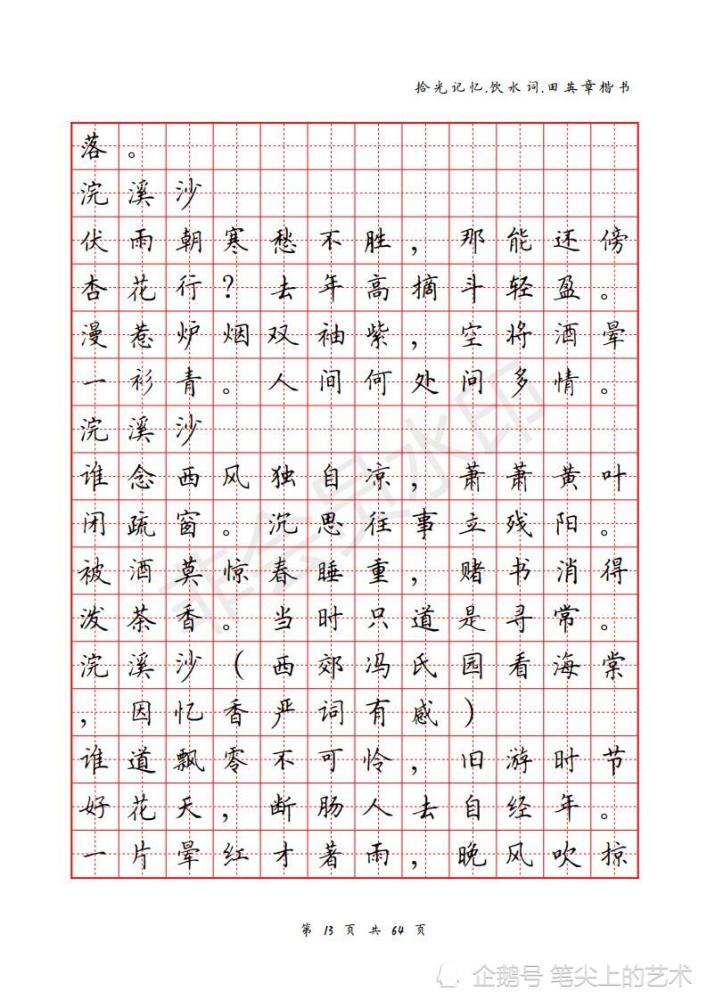 拾光记忆.饮水词.田英章楷书
落。
浣溪沙
伏雨朝寒愁不胜，那能还傍
杏花行？去年高摘斗轻盈。
漫惹炉烟双袖紫，空将酒晕
一衫青。人间何处问多情。
浣溪沙
谁念西风独自凉，萧萧黄叶
闭疏窗。沉思往事立残阳。
被酒莫惊春睡重，赌书消得
泼茶香。当时只道是寻常。
浣溪沙（西郊冯氏园看海棠
，因忆香严词有感）
谁道飘零不可怜，旧游时节
好花天，断肠人去自经年。
一片晕红才著雨，晚风吹掠
非会员水印
第 13 页 共 64 页
企鹅号 笔尖上的艺术